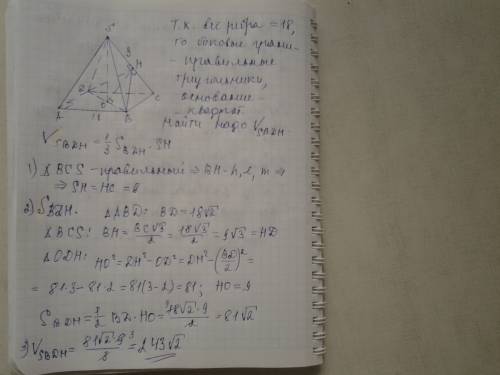 S
Т.к. все ребра = 18,
то боковые грани -
- правильные
треугольники,
основание -
- квадрат.
Найти надо V_SBDH
9
H
C
D
O
A
18
B
V_SBDH = 1/3 S_BDH · SH
1) ΔBCS - правильный ⇒ BH - h, l, m ⇒
⇒ SH = HC = 9
2) S_BDH. ΔABD: BD = 18√2
ΔBCS: BH = BC√3/2 = 18√3/2 = 9√3 = HD
ΔODH: HO² = DH² - OD² = DH² - (BD/2)² =
= 81·3 - 81·2 = 81(3-2) = 81; HO = 9
S_BDH = 1/2 BD · HO = 18√2 · 9/2 = 81√2
3) V_SBDH = 81√2 · 9/3 = 243√2